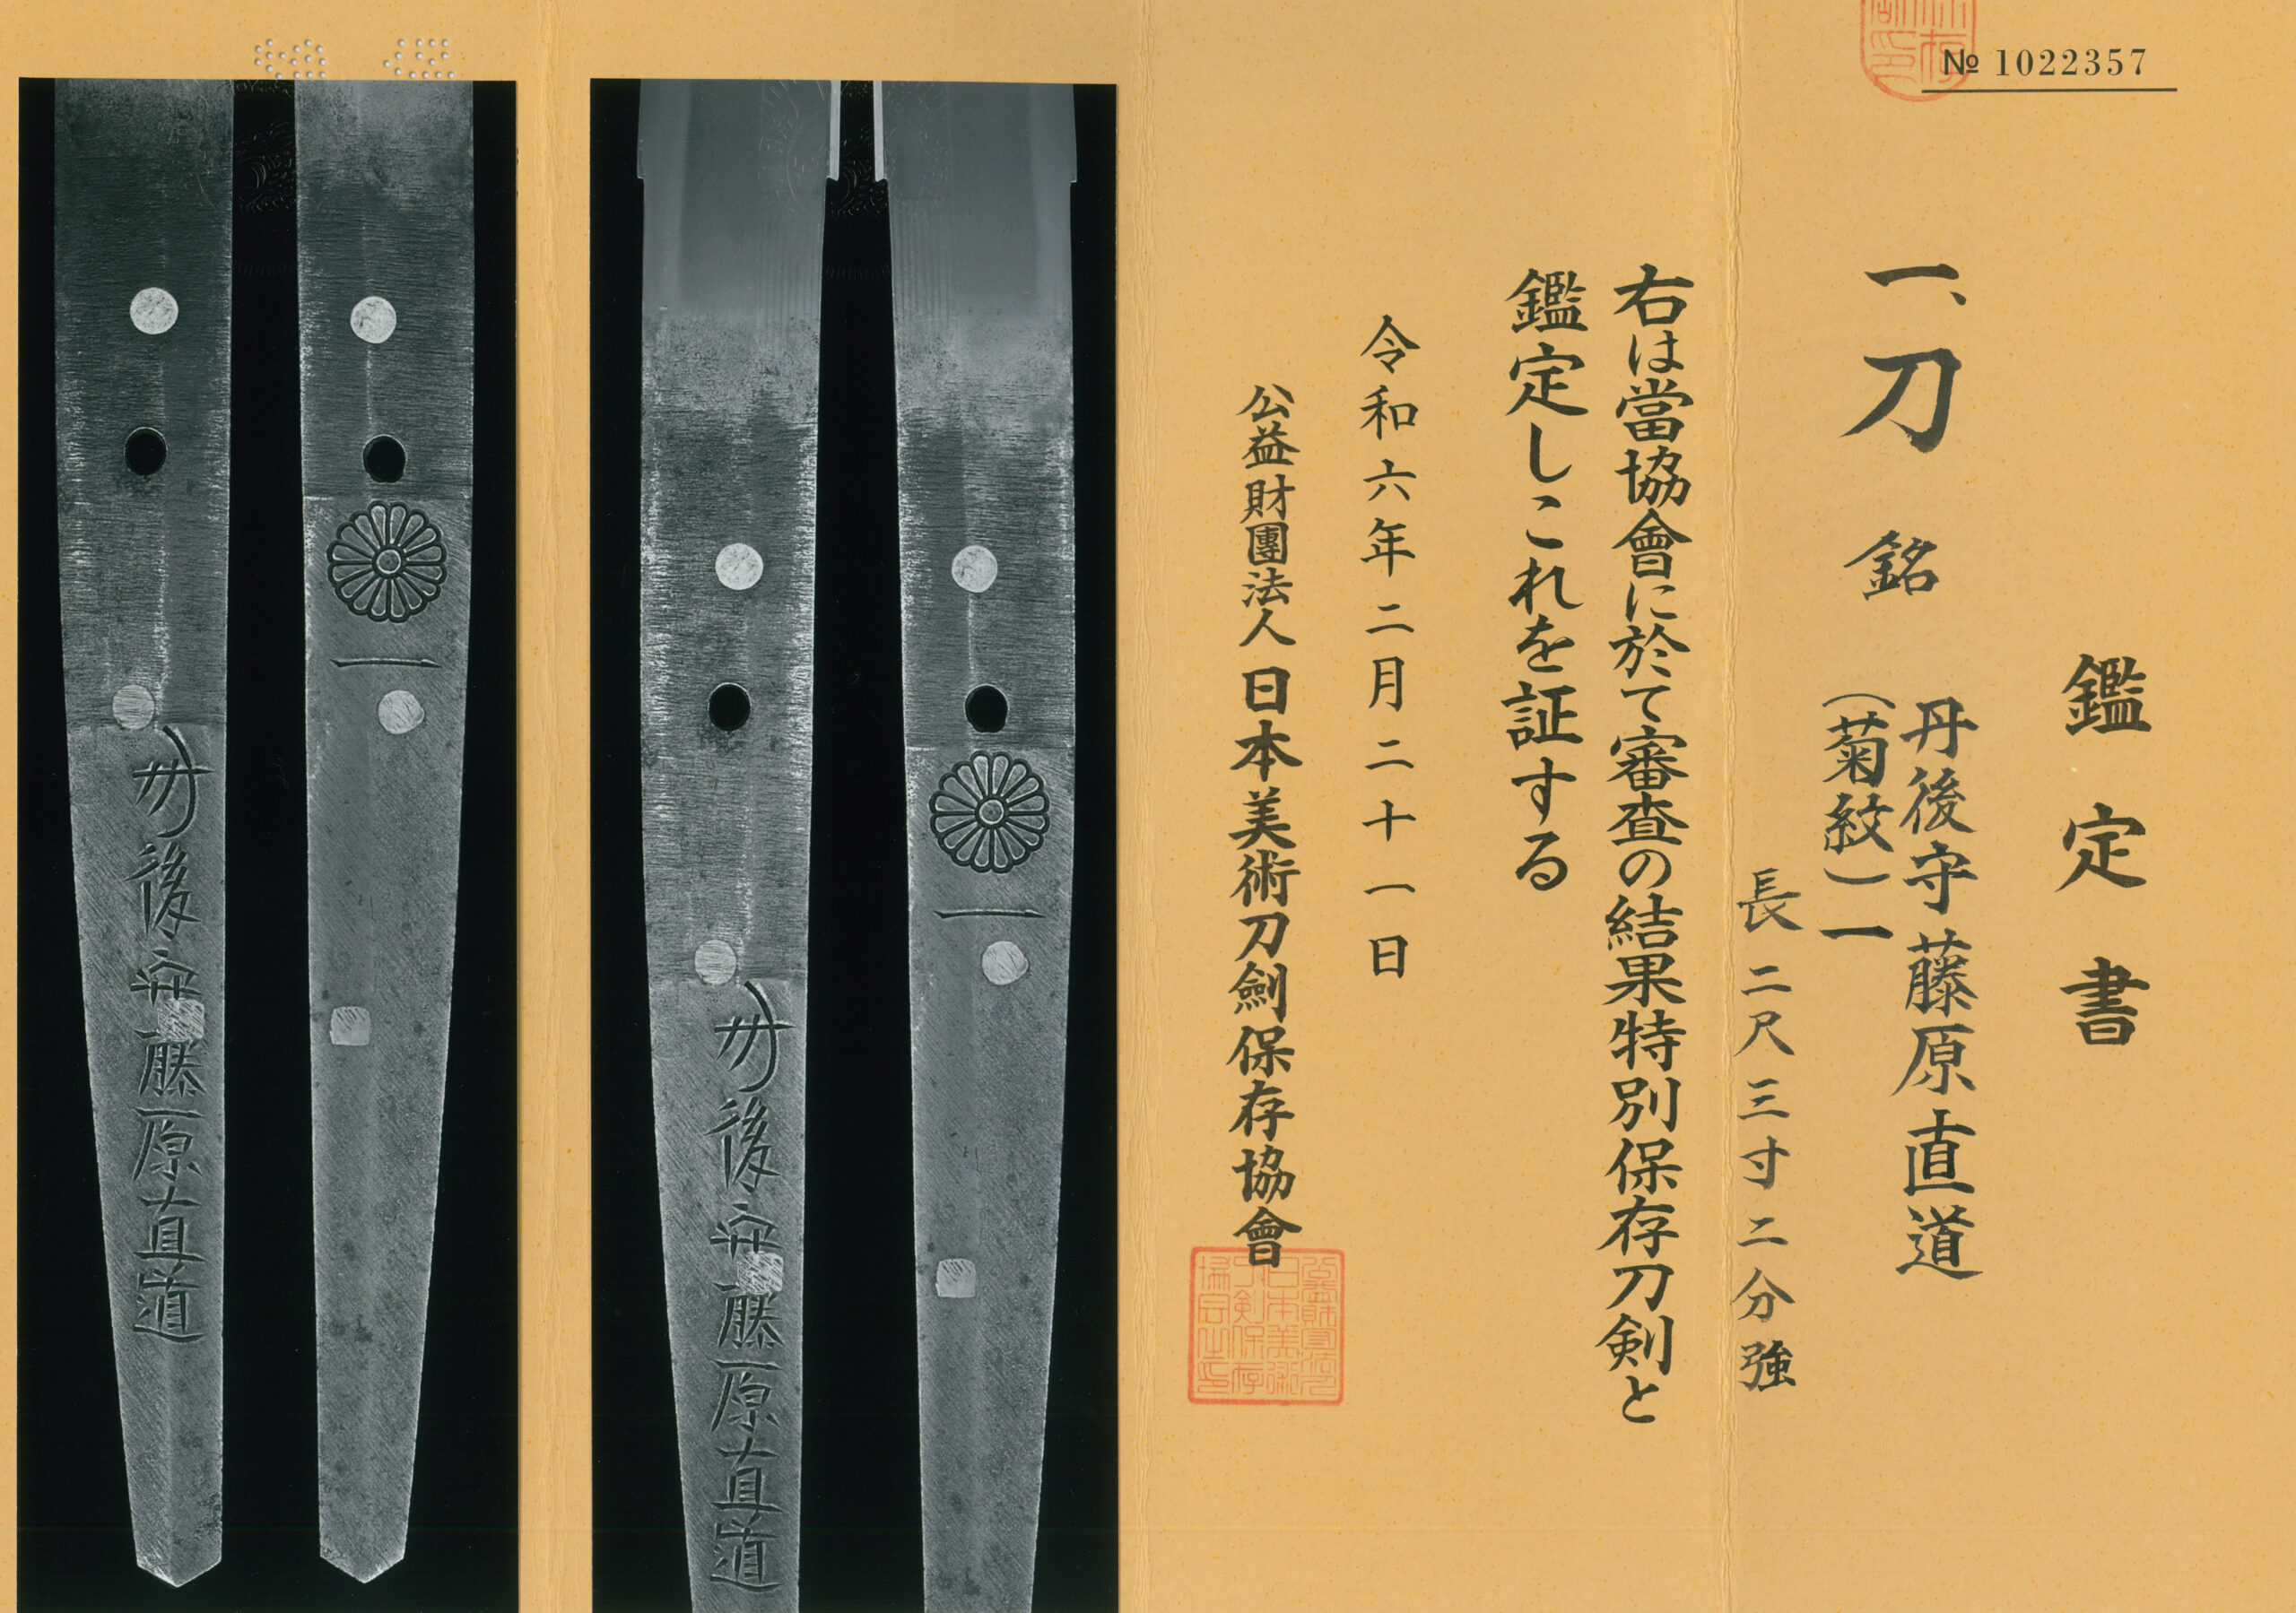 № 1022357
鑑定書
一、刀 銘 丹後守藤原直道
(菊紋)一
長 二尺三寸二分強
右は當協會に於て審査の結果特別保存刀剣と
鑑定しこれを証する
令和六年二月二十一日
公益財團法人 日本美術刀劍保存協會
一
丹後守藤原直道
一
丹後守藤原直道